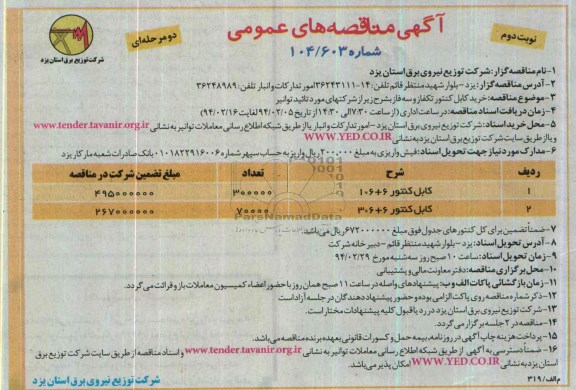 آگهی مناقصه‌های عمومی
نوبت دوم
دو مرحله‌ای
شماره ۱۰۴/۶۰۳
شرکت توزیع برق استان یزد
۱- نام مناقصه گزار: شرکت توزیع نیروی برق استان یزد
۲- آدرس مناقصه گزار: یزد - بلوار شهید منتظر قائم تلفن: ۱۴-۳۶۲۴۳۱۱۱ امور تدارکات و انبار تلفن: ۳۶۲۴۸۹۸۹
۳- موضوع مناقصه: خرید کابل کنتور تکفاز و سه فاز بشرح زیر از شرکتهای مورد تائید توانیر
۴- زمان دریافت اسناد مناقصه: در ساعت اداری (از ساعت ۷/۳۰ الی ۱۴/۳۰) از تاریخ ۹۴/۰۲/۰۵ لغایت ۹۴/۰۲/۱۶
۵- محل خرید اسناد: شرکت توزیع نیروی برق استان یزد - امور تدارکات و انبار یا از طریق شبکه اطلاع رسانی معاملات توانیر به نشانی www.tender.tavanir.org.ir
و یا از طریق سایت شرکت توزیع برق استان یزد به نشانی WWW.YED.CO.IR
۶- مدارک مورد نیاز جهت تحویل اسناد: فیش واریزی به مبلغ ۲۰۰۰۰۰ ریال واریز به حساب سپهر شماره ۰۱۰۱۸۲۲۹۱۶۰۰۶ بانک صادرات شعبه مارکار یزد
ردیف شرح تعداد مبلغ تضمین شرکت در مناقصه
۱ کابل کنتور ۶+۱۰۶ ۳۰۰۰۰۰ ۴۹۵۰۰۰۰۰۰
۲ کابل کنتور ۶+۳۰۶ ۷۰۰۰۰ ۲۶۷۰۰۰۰۰۰
ParsNamadData
۷- ضمناً تضمین برای کل کنتورهای جدول فوق مبلغ ۶۷۲۰۰۰۰۰۰ ریال می باشد.
۸- آدرس تحویل اسناد: یزد - بلوار شهید منتظر قائم - دبیرخانه شرکت
۹- زمان تحویل اسناد: ساعت ۱۰ صبح روز سه شنبه مورخ ۹۴/۰۲/۲۹
۱۰- محل برگزاری مناقصه: دفتر معاونت مالی و پشتیبانی
۱۱- زمان بازگشائی پاکات الف و ب: پیشنهادهای واصله در ساعت ۱۱ صبح همان روز با حضور اعضاء کمیسیون معاملات باز و قرائت می گردد.
۱۲- ذکر شماره مناقصه روی پاکت الزامی بوده و حضور پیشنهاد دهندگان در جلسه آزاد است
۱۳- شرکت توزیع نیروی برق استان یزد در رد یا قبول کلیه پیشنهادات مختار است.
۱۴- مناقصه در ۲ جلسه برگزار می گردد.
۱۵- پرداخت هزینه چاپ آگهی در روزنامه، بیمه حمل و کسورات قانونی به عهده برنده مناقصه می باشد.
۱۶- ضمناً دسترسی به آگهی از طریق شبکه اطلاع رسانی معاملات توانیر به نشانی www.tender.tavanir.org.ir و اسناد مناقصه از طریق سایت شرکت توزیع برق
استان یزد به نشانی WWW.YED.CO.IR امکان پذیر می باشد.
م الف/ ۳۱۹
شرکت توزیع نیروی برق استان یزد